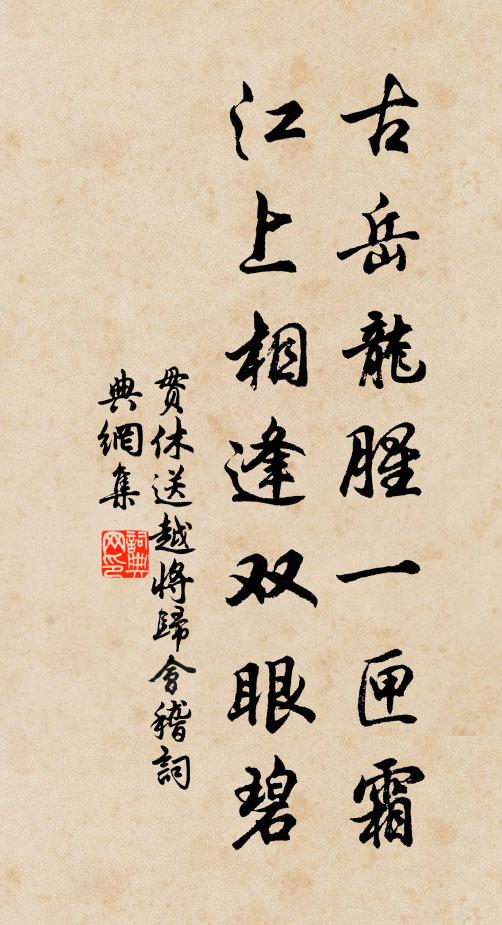 古岳龍腥一匣霜
江上相逢双眼碧
贯休送越将歸會稽詞
典網集
詞典网印